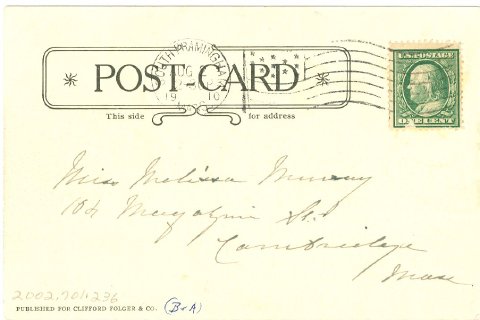 SOUTH FRAMINGHAM
AUG
19 10
U.S. POSTAGE
ONE CENT
POST-CARD
This side for address
Miss Melissa Murray
104 Magazine St.
Cambridge
Mass.
2002.701.236
PUBLISHED FOR CLIFFORD FOLGER & CO. (B+A)